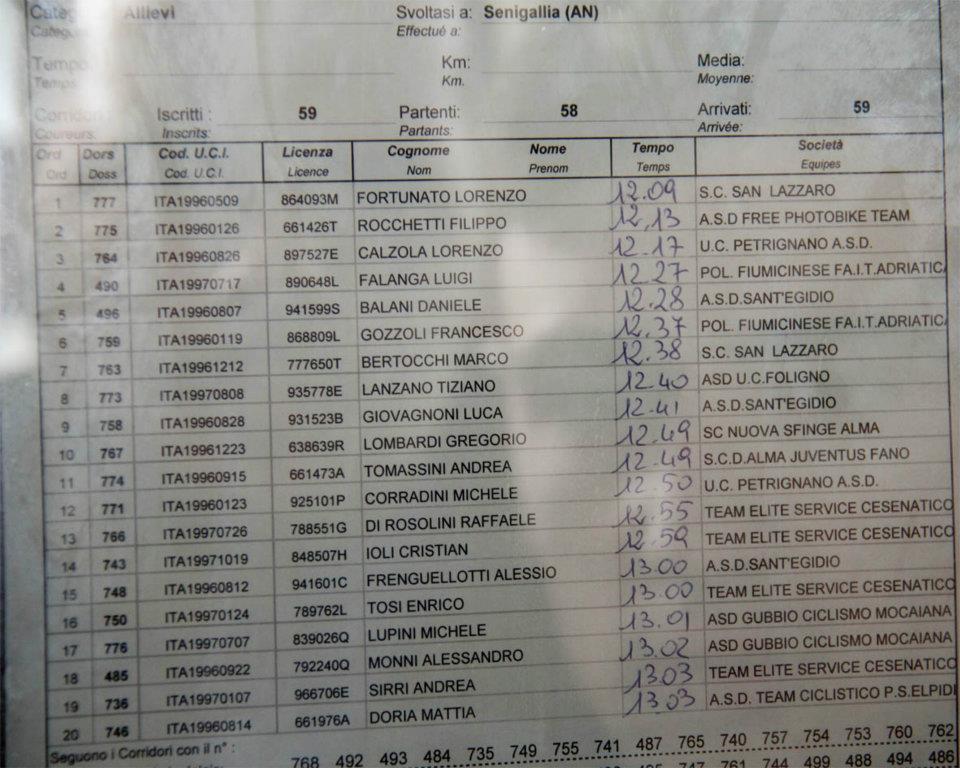 Categ Allievi Svoltasi a: Senigallia (AN)
Catego Effectué a:
Tempo Km: Media:
Temps Km. Moyenne:
Corridori Iscritti : 59 Partenti: 58 Arrivati: 59
Coureurs: Inscrits: Partants: Arrivée:
Ord Dors Cod. U.C.I. Licenza Cognome Nome Tempo Società
Ord Doss Cod. U.C.I. Licence Nom Prenom Temps Equipes
1 777 ITA19960509 864093M FORTUNATO LORENZO 12.09 S.C. SAN LAZZARO
2 775 ITA19960126 661426T ROCCHETTI FILIPPO 12,13 A.S.D FREE PHOTOBIKE TEAM
3 764 ITA19960826 897527E CALZOLA LORENZO 12.17 U.C. PETRIGNANO A.S.D.
4 490 ITA19970717 890648L FALANGA LUIGI 12.27 POL. FIUMICINESE FA.I.T.ADRIATICA
5 496 ITA19960807 941599S BALANI DANIELE 12.28 A.S.D.SANT'EGIDIO
6 759 ITA19960119 868809L GOZZOLI FRANCESCO 12.37 POL. FIUMICINESE FA.I.T.ADRIATICA
7 763 ITA19961212 777650T BERTOCCHI MARCO 12.38 S.C. SAN LAZZARO
8 773 ITA19970808 935778E LANZANO TIZIANO 12.40 ASD U.C.FOLIGNO
9 758 ITA19960828 931523B GIOVAGNONI LUCA 12.41 A.S.D.SANT'EGIDIO
10 767 ITA19961223 638639R LOMBARDI GREGORIO 12.49 SC NUOVA SFINGE ALMA
11 774 ITA19960915 661473A TOMASSINI ANDREA 12.49 S.C.D.ALMA JUVENTUS FANO
12 771 ITA19960123 925101P CORRADINI MICHELE 12.50 U.C. PETRIGNANO A.S.D.
13 766 ITA19970726 788551G DI ROSOLINI RAFFAELE 12.55 TEAM ELITE SERVICE CESENATICO
14 743 ITA19971019 848507H IOLI CRISTIAN 12.59 TEAM ELITE SERVICE CESENATICO
15 748 ITA19960812 941601C FRENGUELLOTTI ALESSIO 13.00 A.S.D.SANT'EGIDIO
16 750 ITA19970124 789762L TOSI ENRICO 13.00 TEAM ELITE SERVICE CESENATICO
17 776 ITA19970707 839026Q LUPINI MICHELE 13.01 ASD GUBBIO CICLISMO MOCAIANA
18 485 ITA19960922 792240Q MONNI ALESSANDRO 13.02 ASD GUBBIO CICLISMO MOCAIANA
19 736 ITA19970107 966706E SIRRI ANDREA 13.03 TEAM ELITE SERVICE CESENATICO
20 746 ITA19960814 661976A DORIA MATTIA 13.03 A.S.D. TEAM CICLISTICO P.S.ELPIDI
Seguono i Corridori con il n° : 768 492 493 484 735 749 755 741 487 765 740 757 754 753 760 762
747 761 744 499 488 494 486